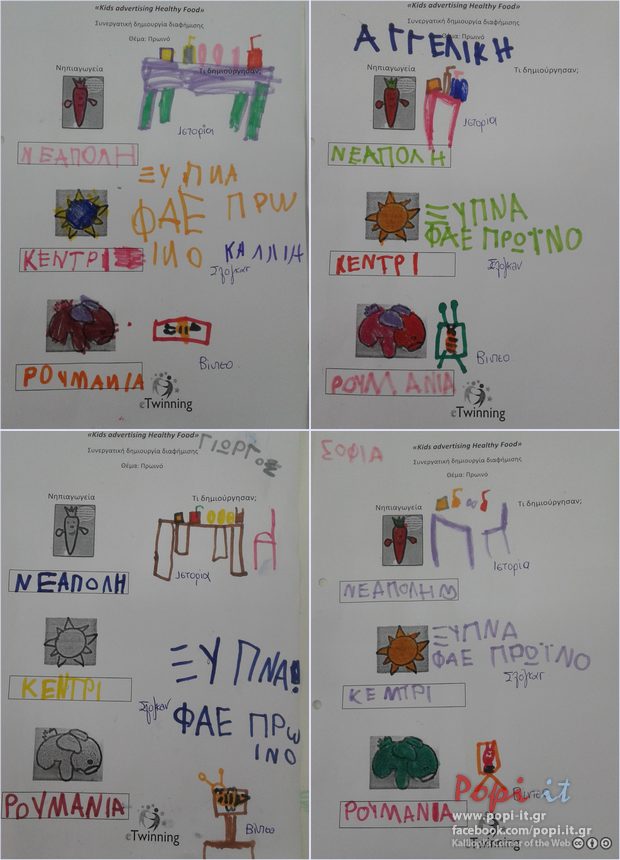 «Kids advertising Healthy Food»
Συνεργατική δημιουργία διαφήμισης
Θέμα: Πρωινό
Νηπιαγωγεία
Τι δημιούργησαν;
Ιστορία
ΝΕΑΠΟΛΗ
ΞΥΠΝΑ
ΦΑΕ ΠΡΩ
ΙΝΟ
ΚΑΛΛΙΗ
ΚΕΝΤΡΙ
Σλόγκαν
Βιντεο
ΡΟΥΜΑΝΙΑ
eTwinning
«Kids advertising Healthy Food»
Συνεργατική δημιουργία διαφήμισης
Θέμα: Πρωινό
ΑΓΓΕΛΙΚΗ
Νηπιαγωγεία
Τι δημιούργησαν;
Ιστορία
ΝΕΑΠΟΛΗ
ΞΥΠΝΑ
ΦΑΕ ΠΡΩΪΝΟ
ΚΕΝΤΡΙ
Σλόγκαν
Βιντεο
ΡΟΥΜΑΝΙΑ
eTwinning
«Kids advertising Healthy Food»
ΓΙΩΡΓΟΣ
Συνεργατική δημιουργία διαφήμισης
Θέμα: Πρωινό
Νηπιαγωγεία
Τι δημιούργησαν;
Ιστορία
ΝΕΑΠΟΛΗ
ΞΥΠΝΑ!
ΚΕΝΤΡΙ
Σλόγκαν
ΦΑΕ ΠΡΩ
ΙΝΟ
ΡΟΥΜΑΝΙΑ
Βιντεο
eTwinning
ΣΟΦΙΑ
«Kids advertising Healthy Food»
Συνεργατική δημιουργία διαφήμισης
Θέμα: Πρωινό
Νηπιαγωγεία
Τι δημιούργησαν;
Ιστορία
ΝΕΑΠΟΛΗ
ΞΥΠΝΑ
ΦΑΕ ΠΡΩΪΝΟ
Σλόγκαν
ΚΕΜΤΡΙ
ΡΟΥΜΑΝΙΑ
Βιντεο
eTwinning
Popi it
www.popi-it.gr
facebook.com/popi.it.gr
Kalliopi's Corner of the Web